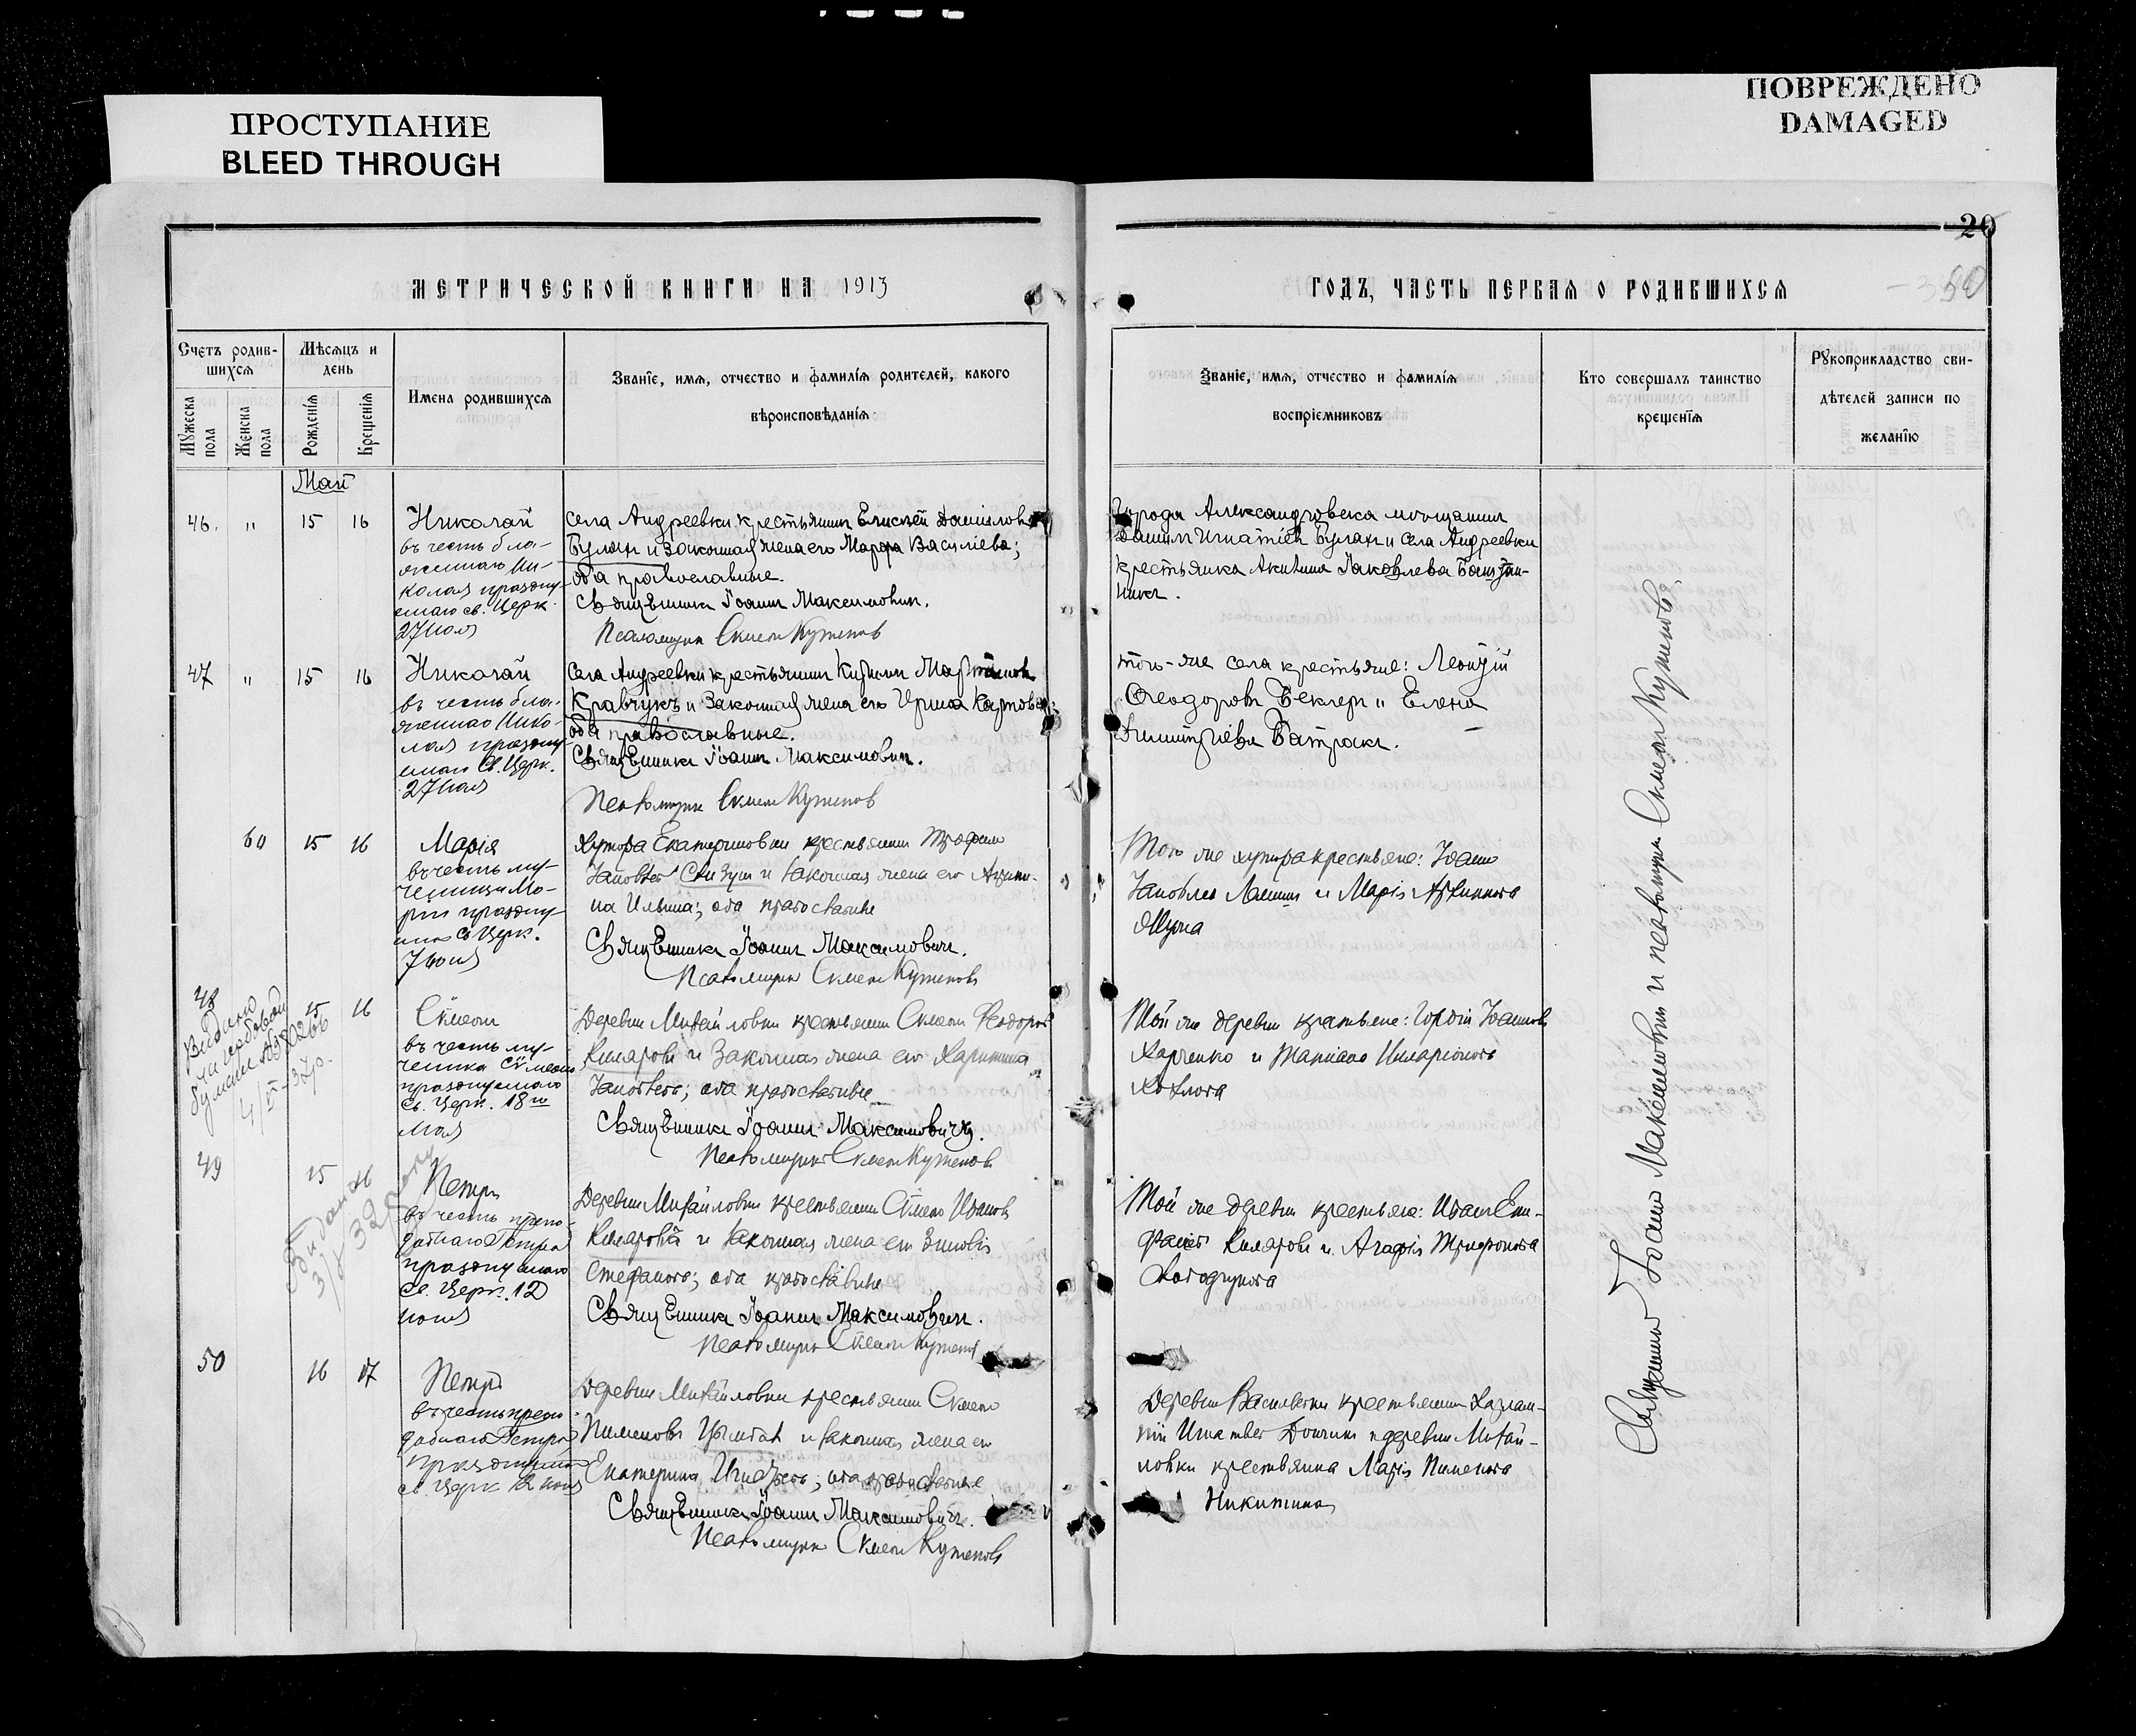 ПРОСТУПАНИЕ
BLEED THROUGH
ПОВРЕЖДЕНО
DAMAGED
20
50
МЕТРИЧЕСКОЙ КНИГИ НА 1913
ГОДЪ, ЧАСТЬ ПЕРВАЯ О РОДИВШИХСЯ
Счетъ родив-
шихся
Мужеска пола
Женска пола
Мѣсяцъ и
день
Рожденія
Крещенія
Имена родившихся
Званіе, имя, отчество и фамилія родителей, какого
вѣроисповѣданія
Званіе, имя, отчество и фамилія
воспріемниковъ
Кто совершалъ таинство
крещенія
Рукоприкладство сви-
дѣтелей записи по
желанію
Май
46. " 15 16
Николай
въ честь бла-
женнаго Ни-
колая праздну
емаго св. Церк.
27 Іюля
села Андреевки крестьянинъ Елисей Даниловъ
Буланъ и законная жена его Марфа Василіева;
оба православные.
Священникъ Іоаннъ Максимовичъ.
Псаломщикъ Симеонъ Кутеповъ
Города Александровска мѣщанинъ
Даніилъ Игнатіевъ Буланъ и села Андреевки
крестьянка Акилина Іаковлева
47 " 15 16
Николай
въ честь бла-
женнаго Нико-
лая праздну
емаго Св. Церк.
27 Іюля
Села Андреевки крестьянинъ Кириллъ
Кравчукъ и законная жена его Ирина Карпова;
оба православные.
Священникъ Іоаннъ Максимовичъ.
Псаломщикъ Симеонъ Кутеповъ
того-же села крестьяне: Леонтій
Ѳеодоровъ Беклеръ и Елена
Димитріева Батракъ.
60 15 16
Марія
въ честь му-
ченицы Ма-
ріи праздну
емой Св Церк.
7 Іюня
Хутора Екатериновки крестьянинъ Трофимъ
Іаковлевъ и законная жена его
на Ильина; оба православные
Священникъ Іоаннъ Максимовичъ.
Псаломщикъ Симеонъ Кутеповъ
Того же хутора крестьяне: Іоаннъ
Іаковлевъ и Марія
48 15 16
Видано
на гербовой
бумаге
Сѵмеонъ
въ честь му-
ченика Сѵмеона
празднуемаго
Св. Церк. 18го
мая
Деревни Михайловки крестьянинъ Симеонъ Ѳеодоровъ
и законная жена его Харитина
Іаковлева; оба православные
Священникъ Іоаннъ Максимовичъ.
Псаломщикъ Симеонъ Кутеповъ
Той же деревни крестьяне: Гордій Іоанновъ
Харченко и Татіана Иларіонова
49 15 16
Видана
Петръ
въ честь препо-
добнаго Петра
празднуемаго
Св. Церк. 12
іюня
Деревни Михайловки крестьянинъ Сѵмеонъ Ивановъ
и законная жена его Зиновія
Стефанова; оба православные
Священникъ Іоаннъ Максимовичъ.
Псаломщикъ Симеонъ Кутеповъ
Той же деревни крестьяне: Иванъ Епи-
фаніевъ и Агафія Трифонова
50 16 17
Петръ
въ честь препо-
добнаго Петра
празднуемаго
св. Церк 12 іюня
Деревни Михайловки крестьянинъ Симеонъ
Пименовъ и законная жена его
Екатерина; оба православные
Священникъ Іоаннъ Максимовичъ.
Псаломщикъ Симеонъ Кутеповъ
Деревни Васильевки крестьянинъ Харлам-
пій Игнатіевъ и деревни Михай-
ловки крестьянка Марія Пименова
Никитина
Священникъ Іоаннъ Максимовичъ и псаломщикъ Симеонъ Кутеповъ